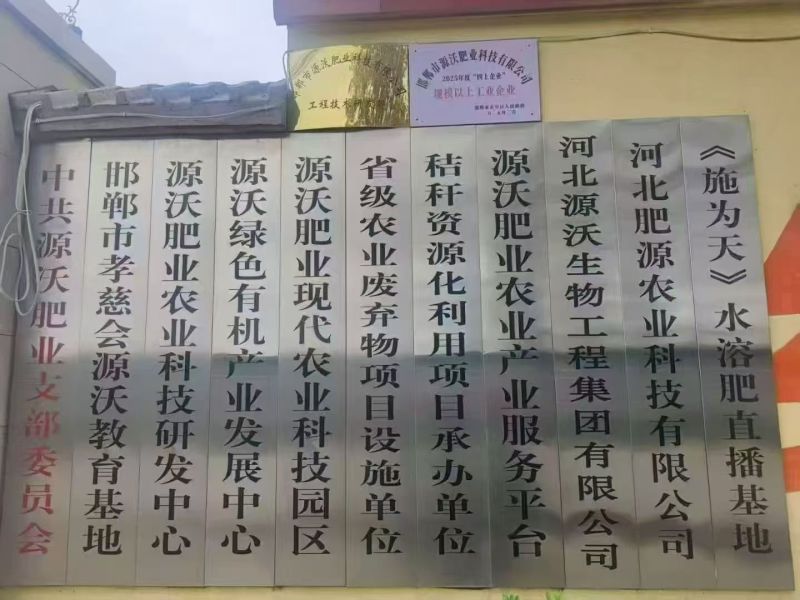 邯郸市源沃肥业科技有限公司
工程技术研
邯郸市源沃肥业科技有限公司
2025年度"四上企业"
规模以上工业企业
中共源沃肥业支部委员会
邯郸市孝慈会源沃教育基地
源沃肥业农业科技研发中心
源沃绿色有机产业发展中心
源沃肥业现代农业科技园区
省级农业废弃物项目设施单位
秸秆资源化利用项目承办单位
源沃肥业农业产业服务平台
河北源沃生物工程集团有限公司
河北肥源农业科技有限公司
《施为天》水溶肥直播基地